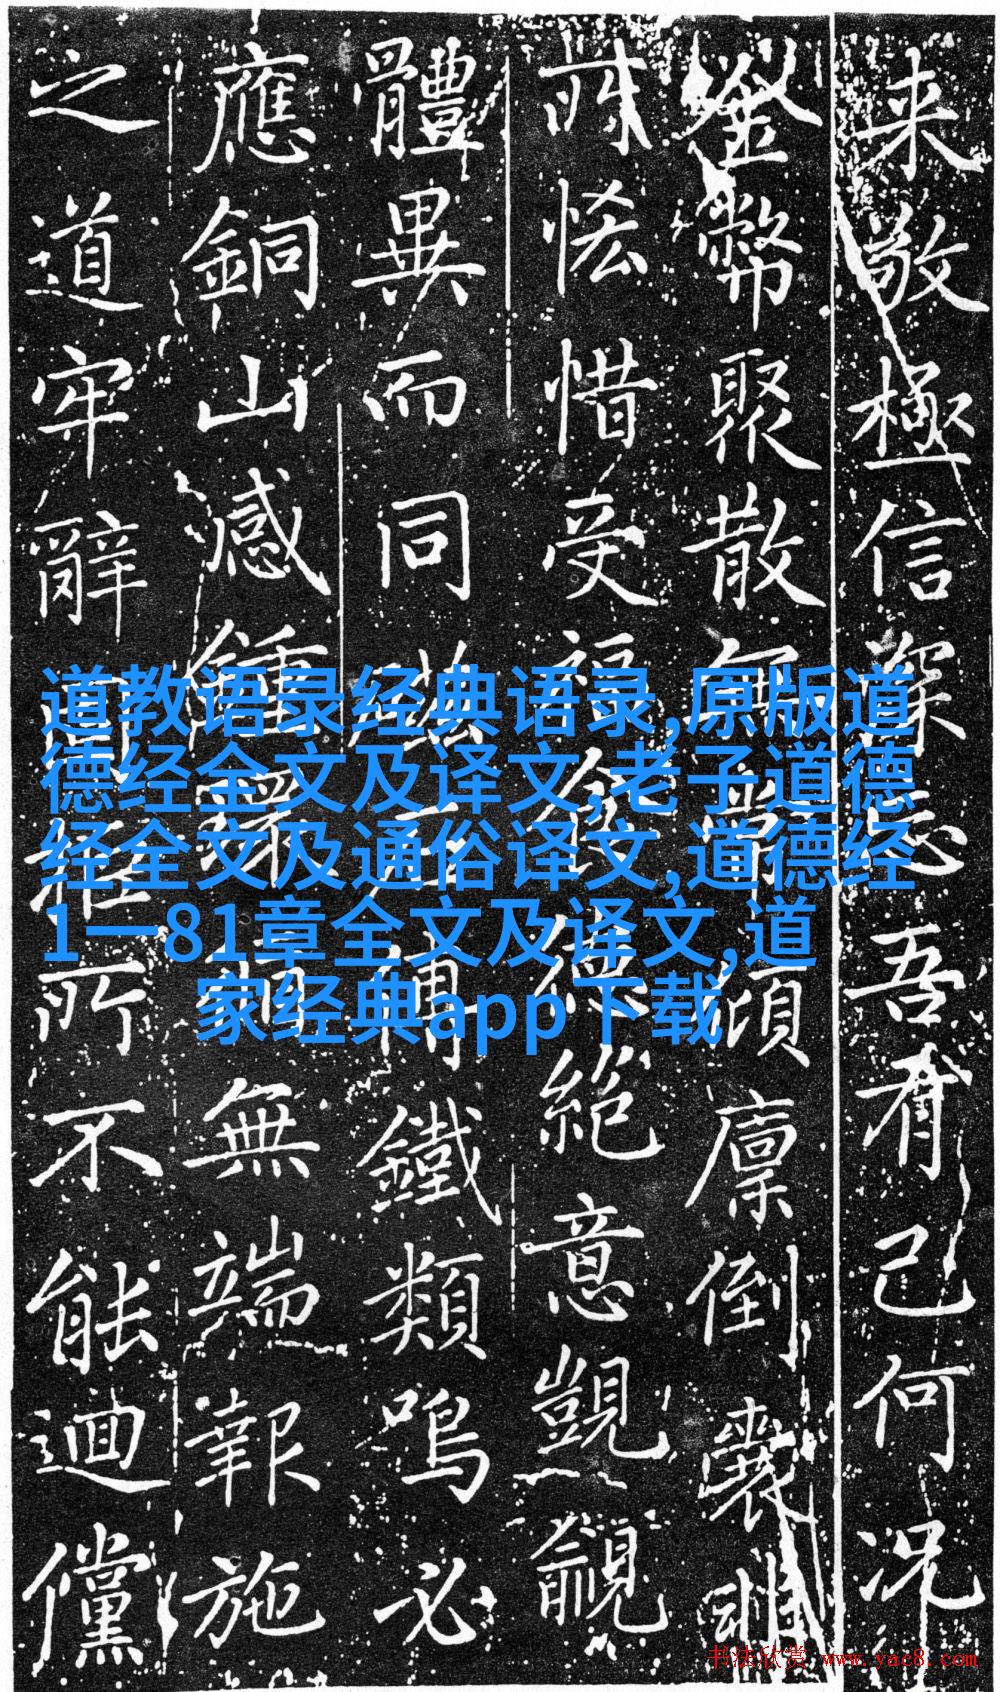 来敬極信深忘吾有己何况
金幣聚散無傾廩倒囊雖
所恡惜受福德絕意覬覦
體異而同鐵類鳴必
應銅山感鍾無端報施
之道牢辭所不能迴儻
道教语录经典语录,原版道
德经全文及译文,老子道德
经全文及通俗译文,道德经
1一81章全文及译文,道
家经典app下载
书法欣赏 www.yac8.com